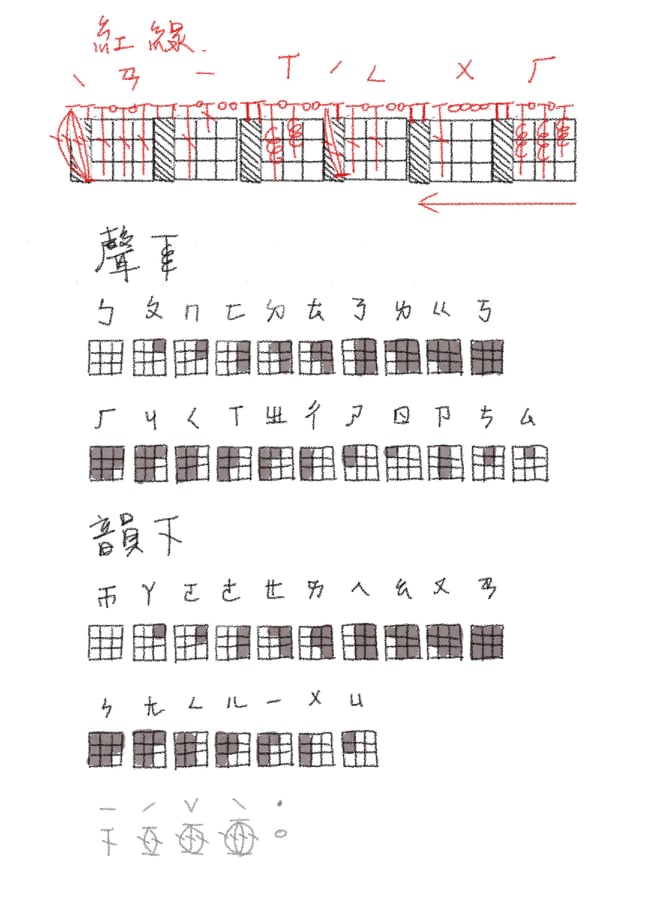 紅線.
ˋ ㄢ ㄧ ㄒ ˊ ㄥ ㄨ ㄏ
聲
ㄅ ㄆ ㄇ ㄈ ㄉ ㄊ ㄋ ㄌ ㄍ ㄎ
ㄏ ㄐ ㄑ ㄒ ㄓ ㄔ ㄕ ㄖ ㄗ ㄘ ㄙ
韻
帀 ㄚ ㄛ ㄜ ㄝ ㄞ ㄟ ㄠ ㄡ ㄢ
ㄣ ㄤ ㄥ ㄦ ㄧ ㄨ ㄩ
ˉ ˊ ˇ ˋ ˙